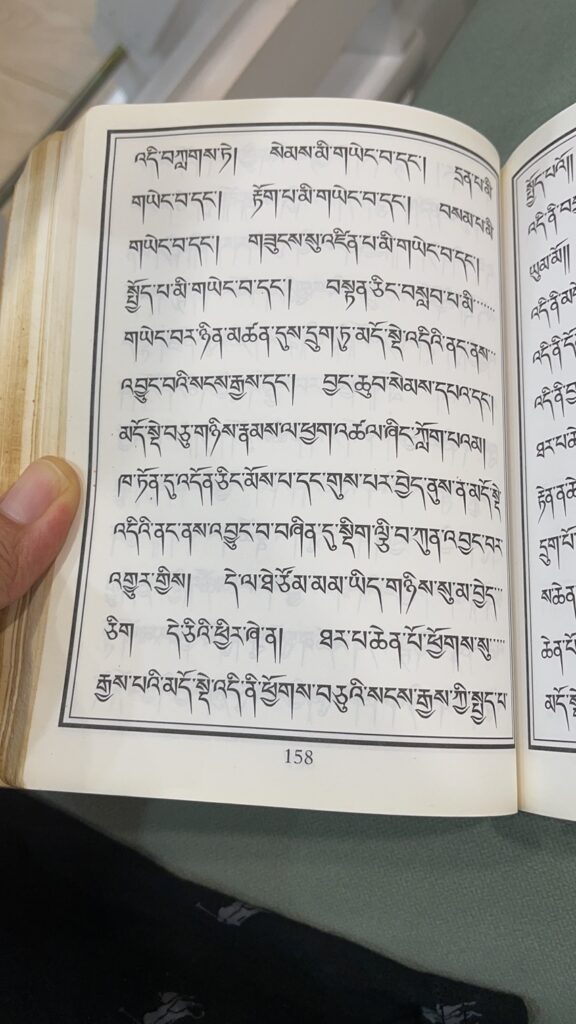 འདི་བཀླགས་ཏེ། སེམས་མི་གཡེང་བ་དང་། དྲན་པ་མི་
གཡེང་བ་དང་། རྟོག་པ་མི་གཡེང་བ་དང་། བསམ་པ་མི་
གཡེང་བ་དང་། གཟུངས་སུ་འཛིན་པ་མི་གཡེང་བ་དང་།
སྤྱོད་པ་མི་གཡེང་བ་དང་། བསྟན་ཅིང་བསླབ་པ་མི་......
གཡེང་བར་ཉིན་མཚན་དུས་དྲུག་ཏུ་མདོ་སྡེ་འདིའི་ནང་ནས་..
འབྱུང་བའི་སངས་རྒྱས་དང་། བྱང་ཆུབ་སེམས་དཔའ་དང་།
མདོ་སྡེ་བཅུ་གཉིས་རྣམས་ལ་ཕྱག་འཚལ་ཞིང་ཀློག་པའམ།
ཁ་ཏོན་དུ་འདོན་ཅིང་མོས་པ་དང་གུས་པར་བྱེད་ནུས་ན་མདོ་སྡེ་
འདིའི་ནང་ནས་འབྱུང་བ་བཞིན་དུ་སྡིག་ལྕི་བ་ཀུན་འབྱང་བར་
འགྱུར་གྱིས། དེ་ལ་ཐེ་ཙོམ་མམ་ཡིད་གཉིས་སུ་མ་བྱེད་..
ཅིག དེ་ཅིའི་ཕྱིར་ཞེ་ན། ཐར་པ་ཆེན་པོ་ཕྱོགས་སུ་....
རྒྱས་པའི་མདོ་སྡེ་འདི་ནི་ཕྱོགས་བཅུའི་སངས་རྒྱས་ཀྱི་སྤྱད་པ་
158
སྤྱོད་པའོ།།
འདི་ནི་
ཡུམ་མོ།།
འདི་ནི་
འདི་ནི་
འདི་ནི་
ཐར་པ་
དྲུག་པོ་
མཆེན་
ཆེན་པོ་
མདོ་སྡེ་